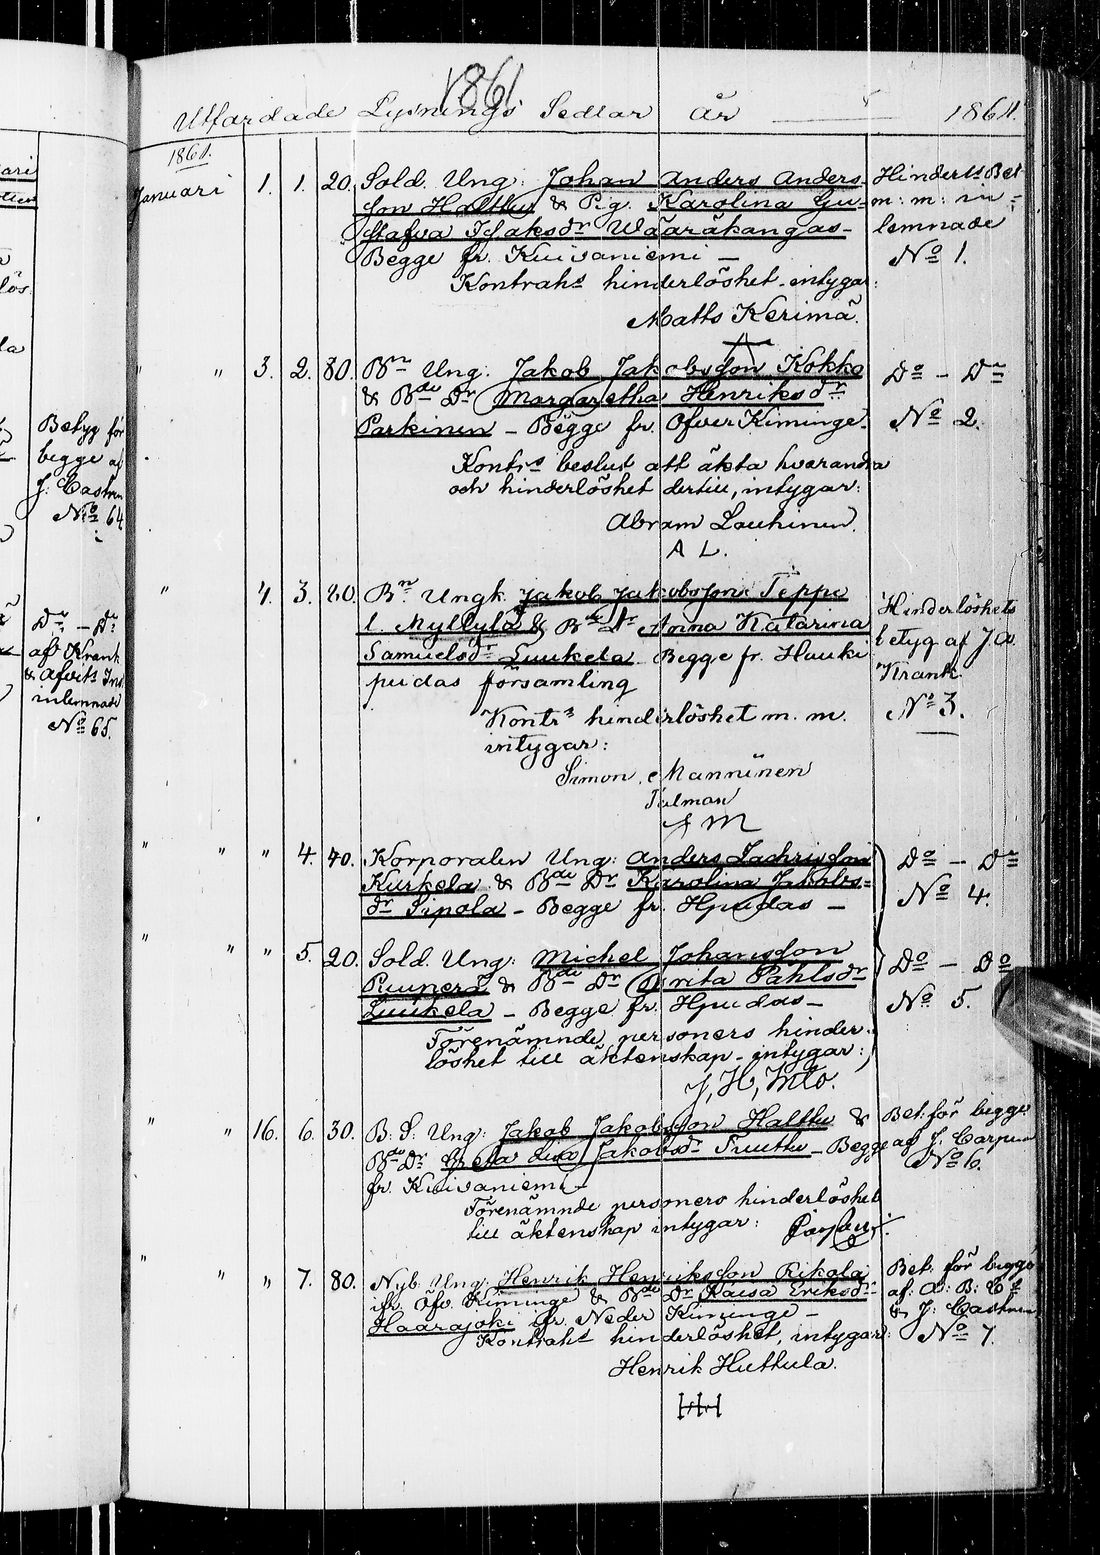 1861
Utfärdade Lysnings Sedlar år 1861.
1861.
Januari 1. 1. 20. Sold. Ung: Johan Anders Anders-
son Halttu & Pig. Karolina Gu-
stafva Isaksdr Wääräkangas -
Begge fr. Kuivaniemi -
Kontrahs hinderlöshet intygar:
Matts Kerimä.
Hinderl:s Bet
m: m: in-
lemnade
No 1.
" " 3. 2. 80. Bn Ung: Jakob Jakobsson Kokko
& Bde Dr Margaretha Henriksdr
Parkinen - Begge fr. Öfver Kiminge.
Kontrs beslut att äkta hvarandra
och hinderlöshet dertill, intygar:
Abram Louhinen.
A L.
Do - Do
No 2.
" 7. 3. 80. Bn Ungk. Jakob Jakobsson Teppo
l. Myllylä & Bde Dr Anna Katarina
Samuelsdr Luukela Begge fr. Hauki
pudas församling
Kontrs hinderlöshet m. m.
intygar:
Simon Manninen
Tolman
S M
Hinderlöshets
betyg af J. A.
Krank
No 3.
" " " 4. 40. Korporalen Ung: Anders Zachrisson
Kurkela & Bde Dr Karolina Jakobs-
dr Sipola - Begge fr. Hpudas -
Do - Do
No 4.
" " " 5. 20. Sold. Ung: Michel Johansson
Ruunera & Bde Dr Brita Påhlsdr
Luukela - Begge fr. Hpudas -
Förenämnde personers hinder-
löshet till äktenskap intygar:
Do - Do
No 5.
" " 16. 6. 30. B: S: Ung: Jakob Jakobsson Halttu &
Bde Dr Greta Lisa Jakobsdr Truuttu - Begge
fr. Kuivaniemi -
Förenämnde personers hinderlöshet
till äktenskap intygar:
Bet: för begge
af J. Carpen
No 6.
" " " 7. 80. Nyb. Ung: Henrik Henriksson Rikola
ifr. Öfv. Kiminge & Bde Dr Kaisa Eriksdr
Haarajoki ifr. Neder Kiminge -
Kontrahs hinderlöshet, intygar:
Henrik Huttula.
Bet: för begge
af: A: B:
& J: Castren
No 7.
Betyg för
begge af
J. Castren
No 64
Do - Do
af Krank
& Afvits Ind
inlemnade
No 65.